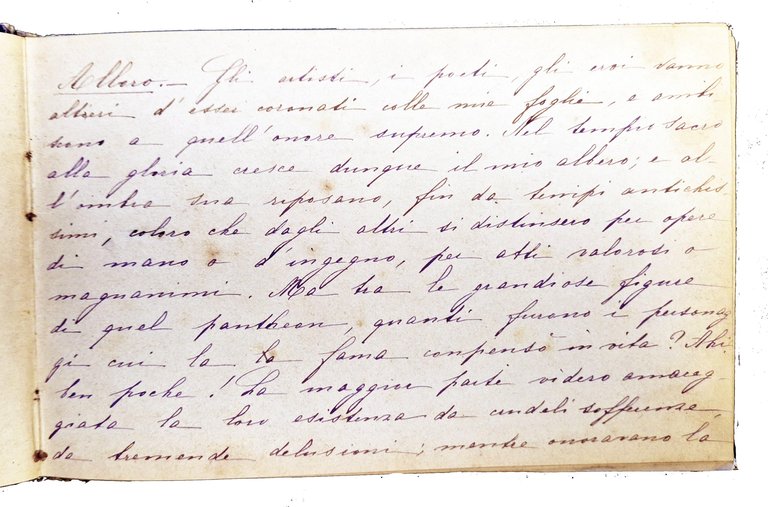 Alloro. — Gli artisti, i poeti, gli eroi vanno
altieri d'esser coronati colle mie foglie, e ambi
scono a quell'onore supremo. Nel tempio sacro
alla gloria cresce dunque il mio albero; e al-
l'ombra sua riposano, fin da tempi antichis
simi, coloro che dagli altri si distinsero per opere
di mano o d'ingegno, per atti valorosi o
magnanimi. Ma tra le grandiose figure
di quel pantheon, quanti furono i personag
gi cui la la fama conpensò in vita? Ahi
ben poche! La maggior parte videro amareg-
giata la loro esistenza da crudeli sofferenze,
da tremende delusioni; mentre onoravano la